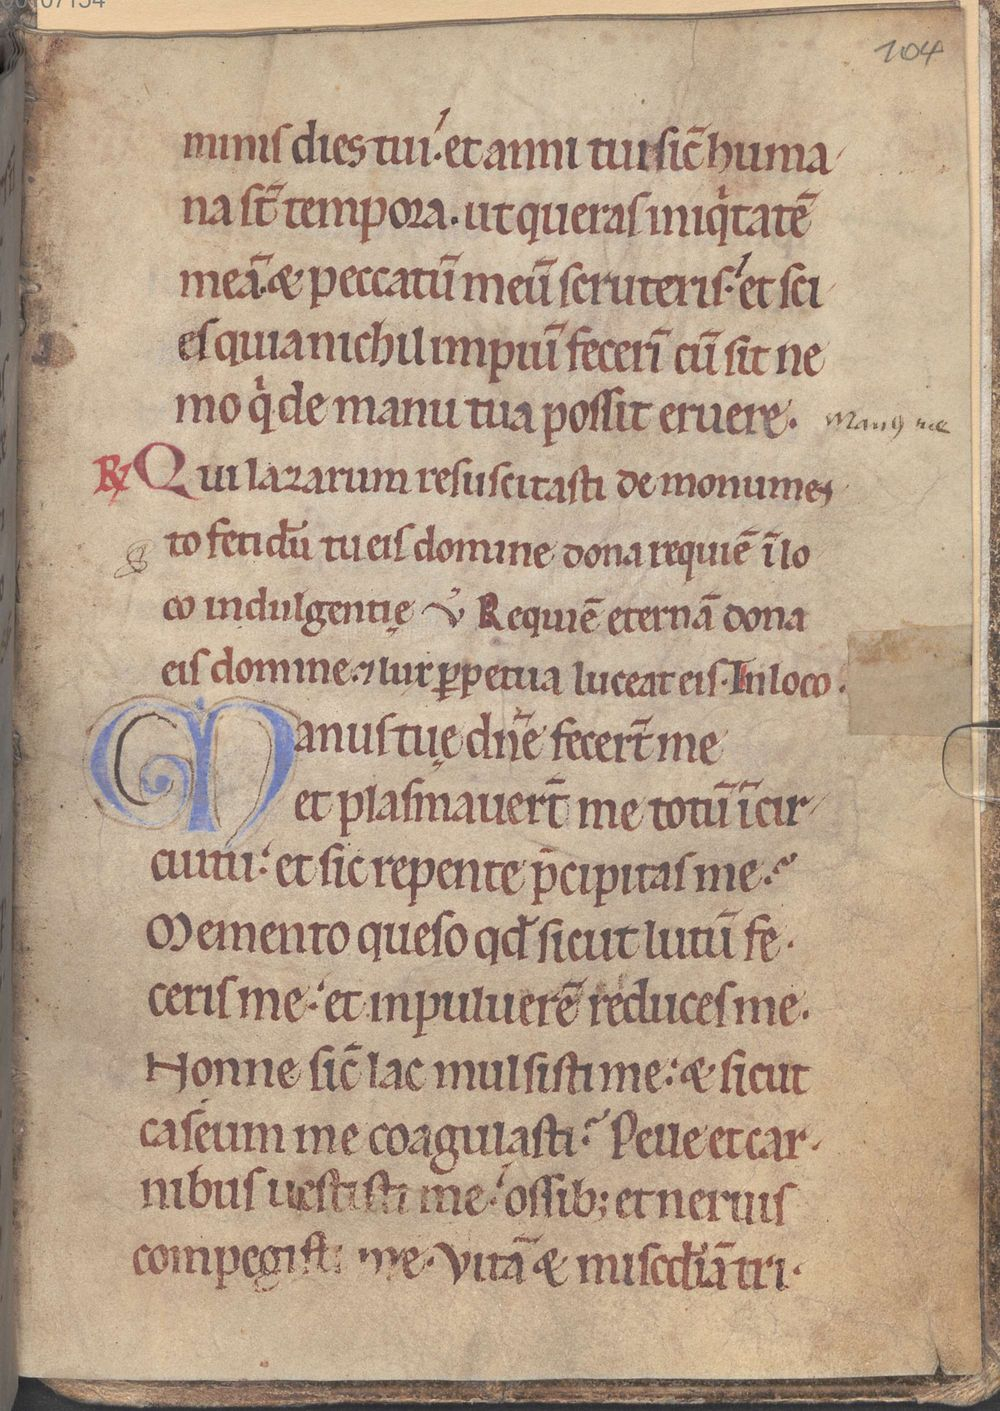 104
minis dies tui. et anni tui sic̄ huma
na st̄ tempora. ut queras iniqͥtatē
meā. & peccatū meū scruteris. et sci
es quia nichil impiū fecerī cū sit ne
mo qͥ de manu tua possit eruere. Manꝰ tue
℟ Qui lazarum resuscitasti de monumen
to fetidū tu eis domine dona requiē ī lo
co indulgentię ℣ Requiē eternā dona
eis domine. ⁊ lux ꝑpetua luceat eis. In loco.
Manus tuę dn̄e fecert̄ me
et plasmauert̄ me totū ī cir
cuitu: et sic repente p̄cipitas me.
Memento queso qđ sicut lutū fe
ceris me: et in puluerē reduces me.
Nonne sic̄ lac mulsisti me: & sicut
caseum me coagulasti. Pelle et car
nibus uestisti me. ossib; et neruis
compegisti me. Vitā & miscd̄iā tri